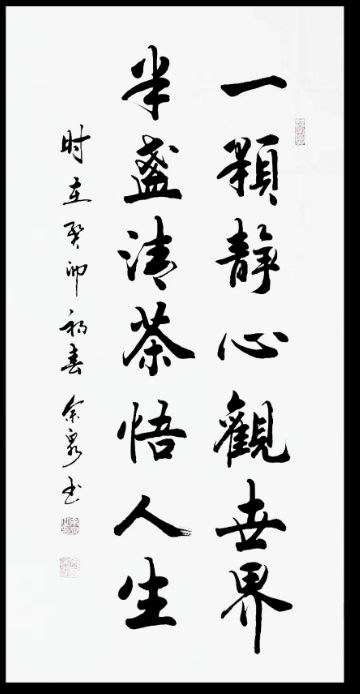 一顆靜心觀世界
半盞清茶悟人生
时在癸卯初春余泉书